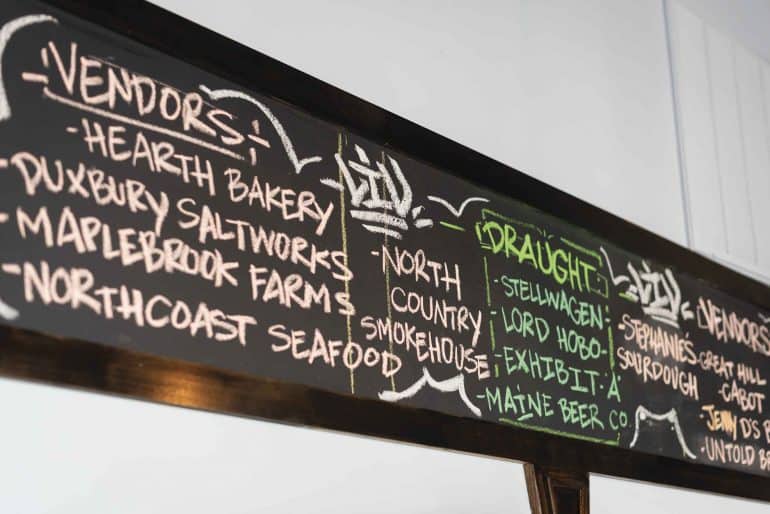 VENDORS
-HEARTH BAKERY
-DUXBURY SALTWORKS
-MAPLEBROOK FARMS
-NORTHCOAST SEAFOOD
LIV
-NORTH
COUNTRY
SMOKEHOUSE
DRAUGHT
-STELLWAGEN-
-LORD HOBO-
-EXHIBIT A
-MAINE BEER CO.
LIV
-STEPHANIE'S
SOURDOUGH
VENDORS
-GREAT HILL
-CABOT
-JENNY D'S
-UNTOLD